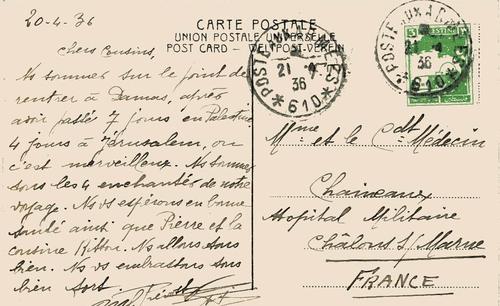 20-4-36
CARTE POSTALE
UNION POSTALE UNIVERSELLE
POST CARD - WELTPOST-VEREIN
Chers Cousins,
Ns sommes sur le point de
rentrer à Damas, après
avoir passé 7 jours en Palestine
4 jours à Jérusalem, où
c'est merveilleux. Ns sommes
tous les 4 enchantés de notre
voyage. Ns vs espérons en bonne
santé ainsi que Pierre et la
cousine Ns allons tous
bien. Ns vs embrassons tous
bien fort.
POSTE AUX ARMÉES
21-4
36
*610*
POSTE AUX ARMÉES
21-4
36
*610*
Mme et le Cdt Médecin
Chaineaux
Hopital Militaire
Châlons s/ Marne
FRANCE